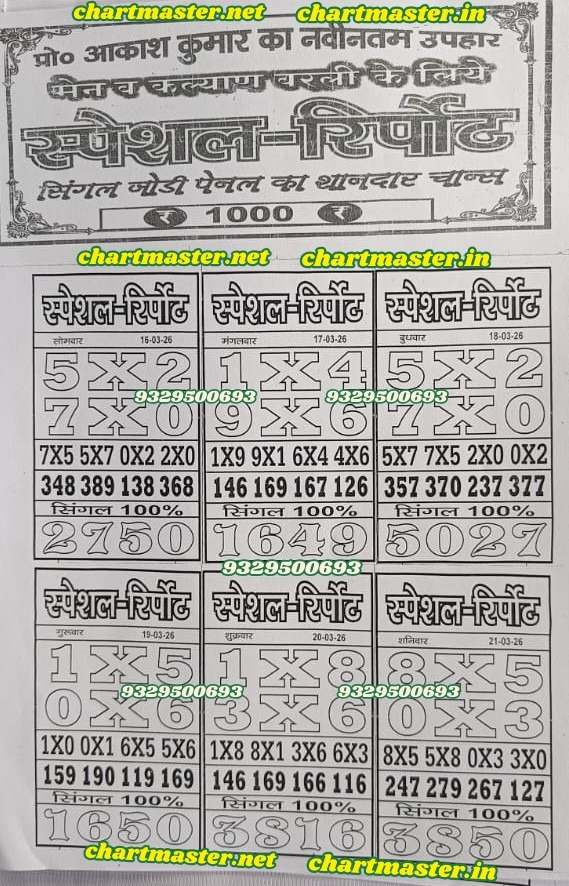 chartmaster.net chartmaster.in
प्रो० आकाश कुमार का नवीनतम उपहार
मेन व कल्याण वरली के लिये
स्पेशल-रिर्पोट
सिंगल जोडी पेनल का शानदार चान्स
₹ 1000 ₹
chartmaster.net chartmaster.in
स्पेशल-रिर्पोट स्पेशल-रिर्पोट स्पेशल-रिर्पोट
सोमवार 16-03-26 मंगलवार 17-03-26 बुधवार 18-03-26
5X2 1X4 5X2
9329500693 9329500693
7X0 9X6 7X0
7X5 5X7 0X2 2X0 1X9 9X1 6X4 4X6 5X7 7X5 2X0 0X2
348 389 138 368 146 169 167 126 357 370 237 377
सिंगल 100% सिंगल 100% सिंगल 100%
2750 1649 5027
9329500693
स्पेशल-रिर्पोट स्पेशल-रिर्पोट स्पेशल-रिर्पोट
गुरूवार 19-03-26 शुक्रवार 20-03-26 शनिवार 21-03-26
1X5 1X8 8X5
9329500693 9329500693
0X6 3X6 0X3
1X0 0X1 6X5 5X6 1X8 8X1 3X6 6X3 8X5 5X8 0X3 3X0
159 190 119 169 146 169 166 116 247 279 267 127
सिंगल 100% सिंगल 100% सिंगल 100%
1650 3816 3850
chartmaster.net chartmaster.in